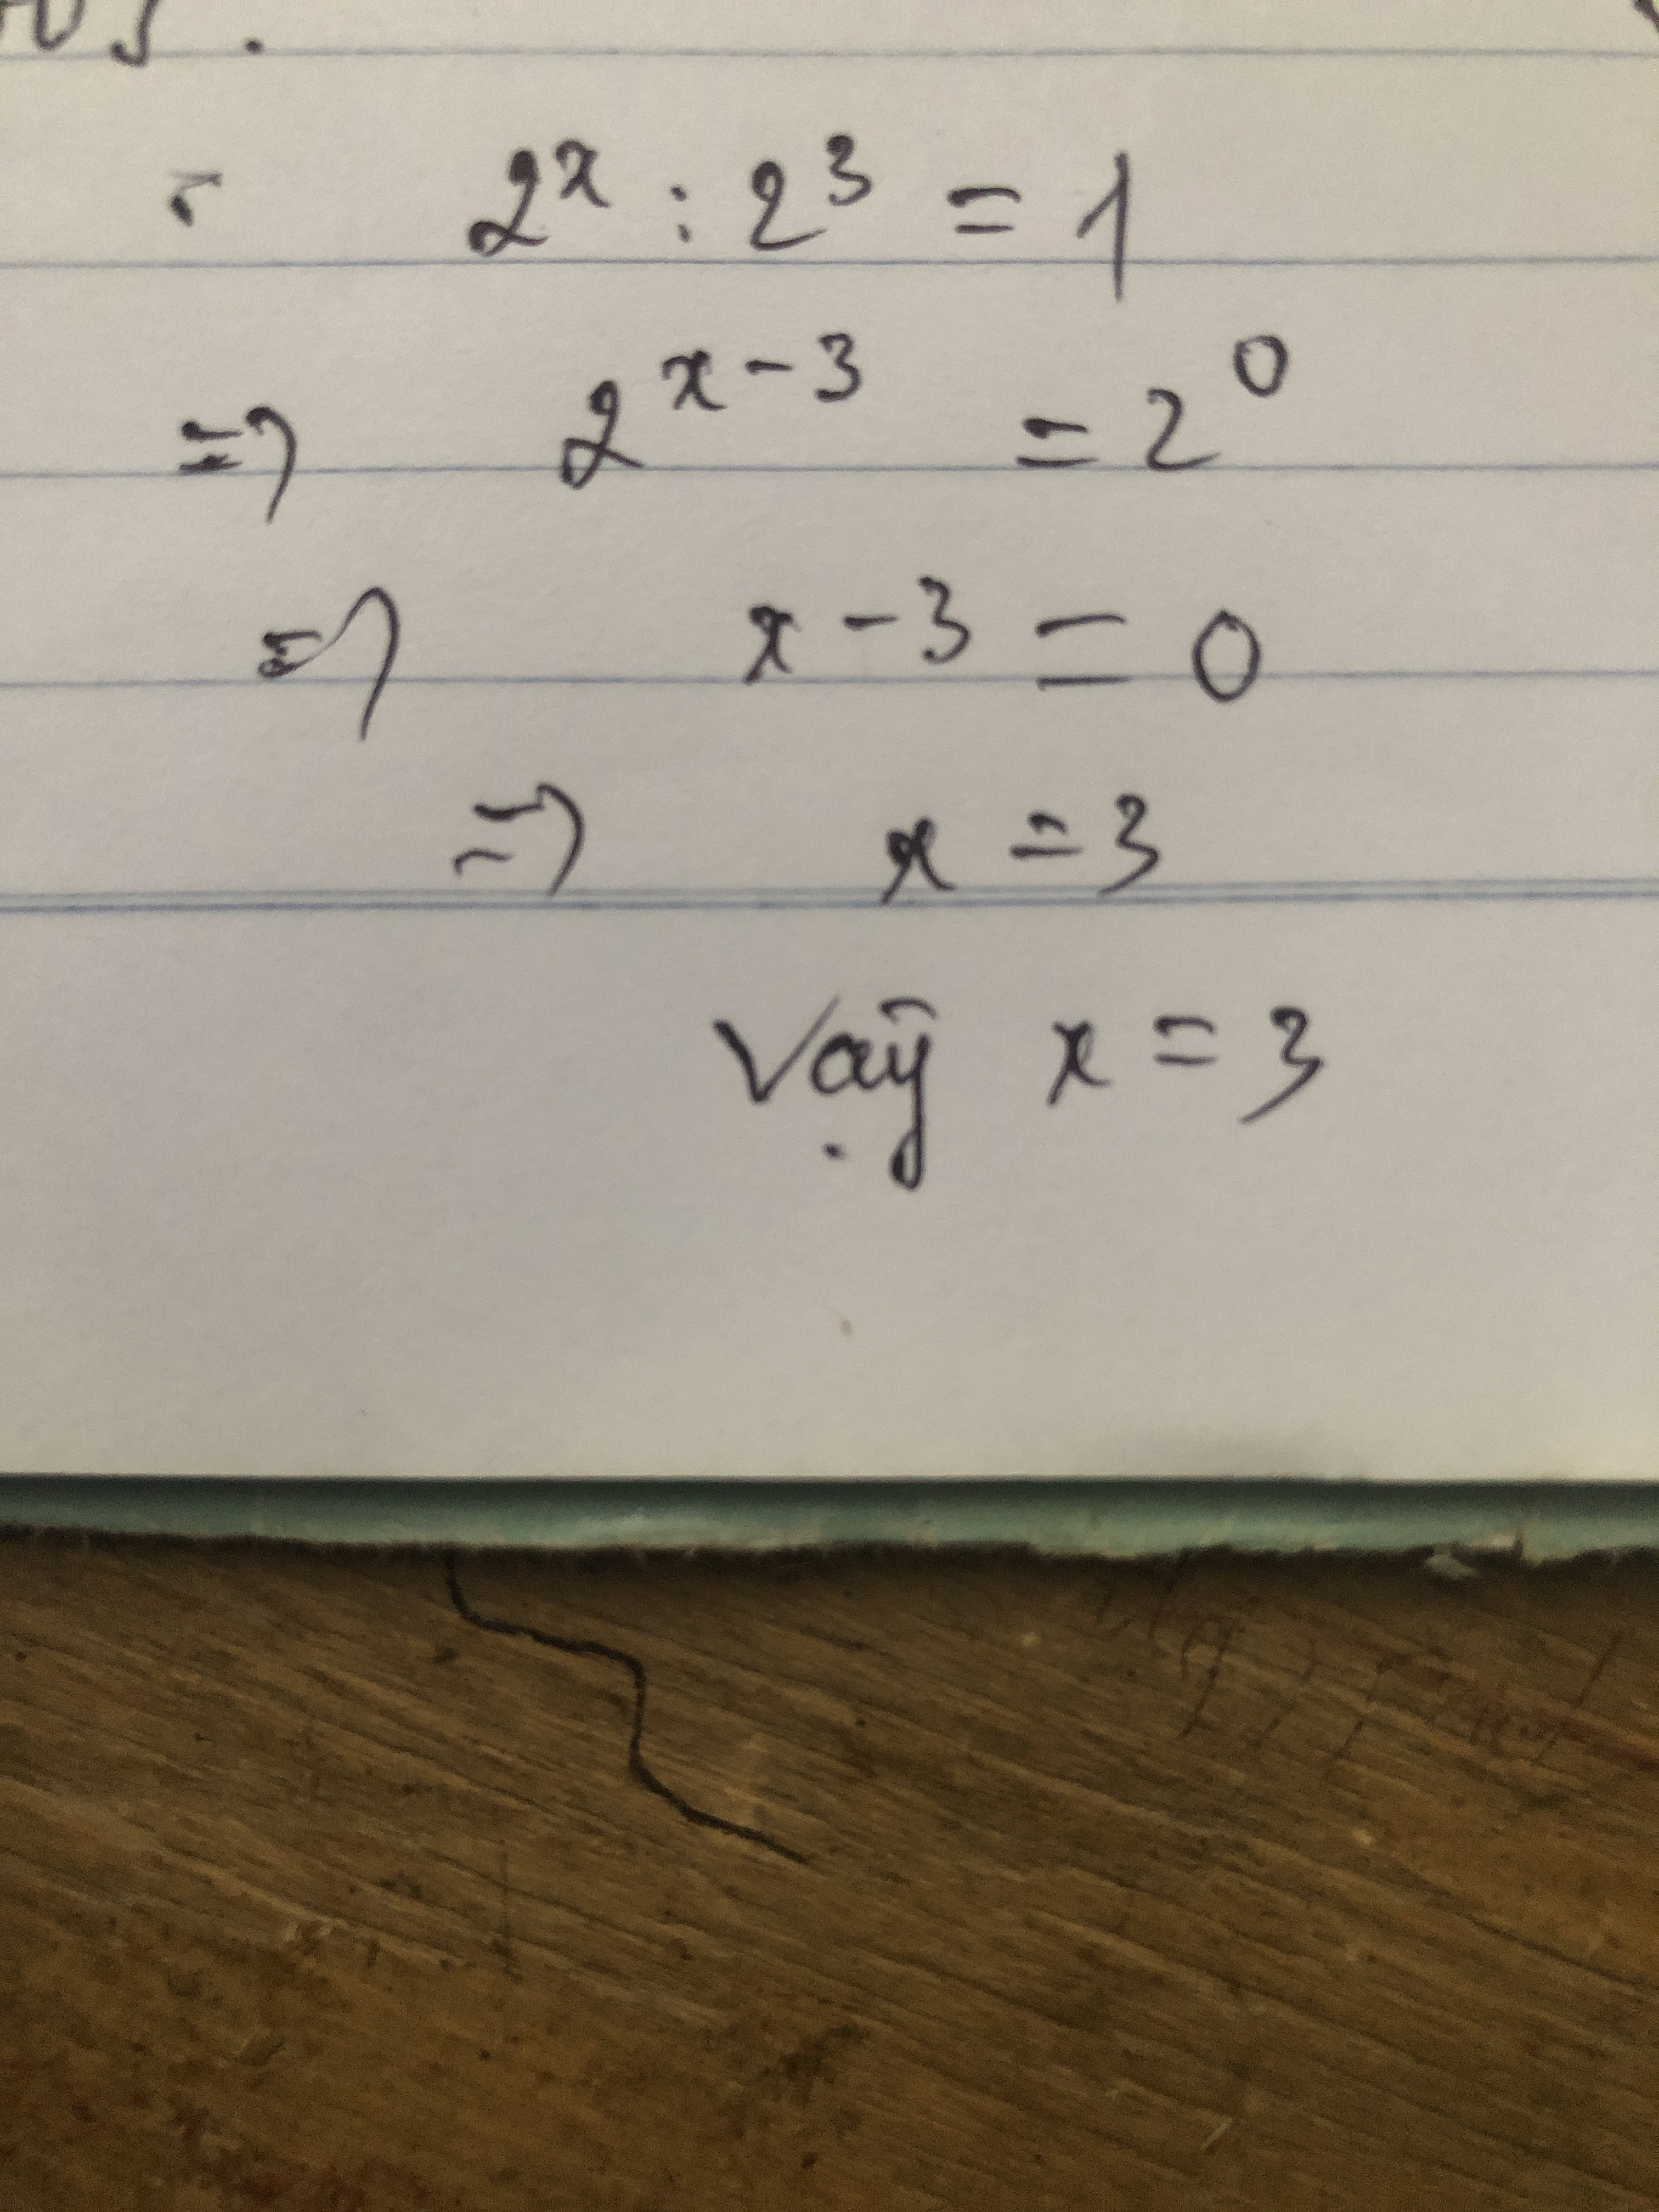 2ˣ : 2³ = 1
=> 2ˣ⁻³ = 2⁰
=> x - 3 = 0
=> x = 3
Vậy x = 3